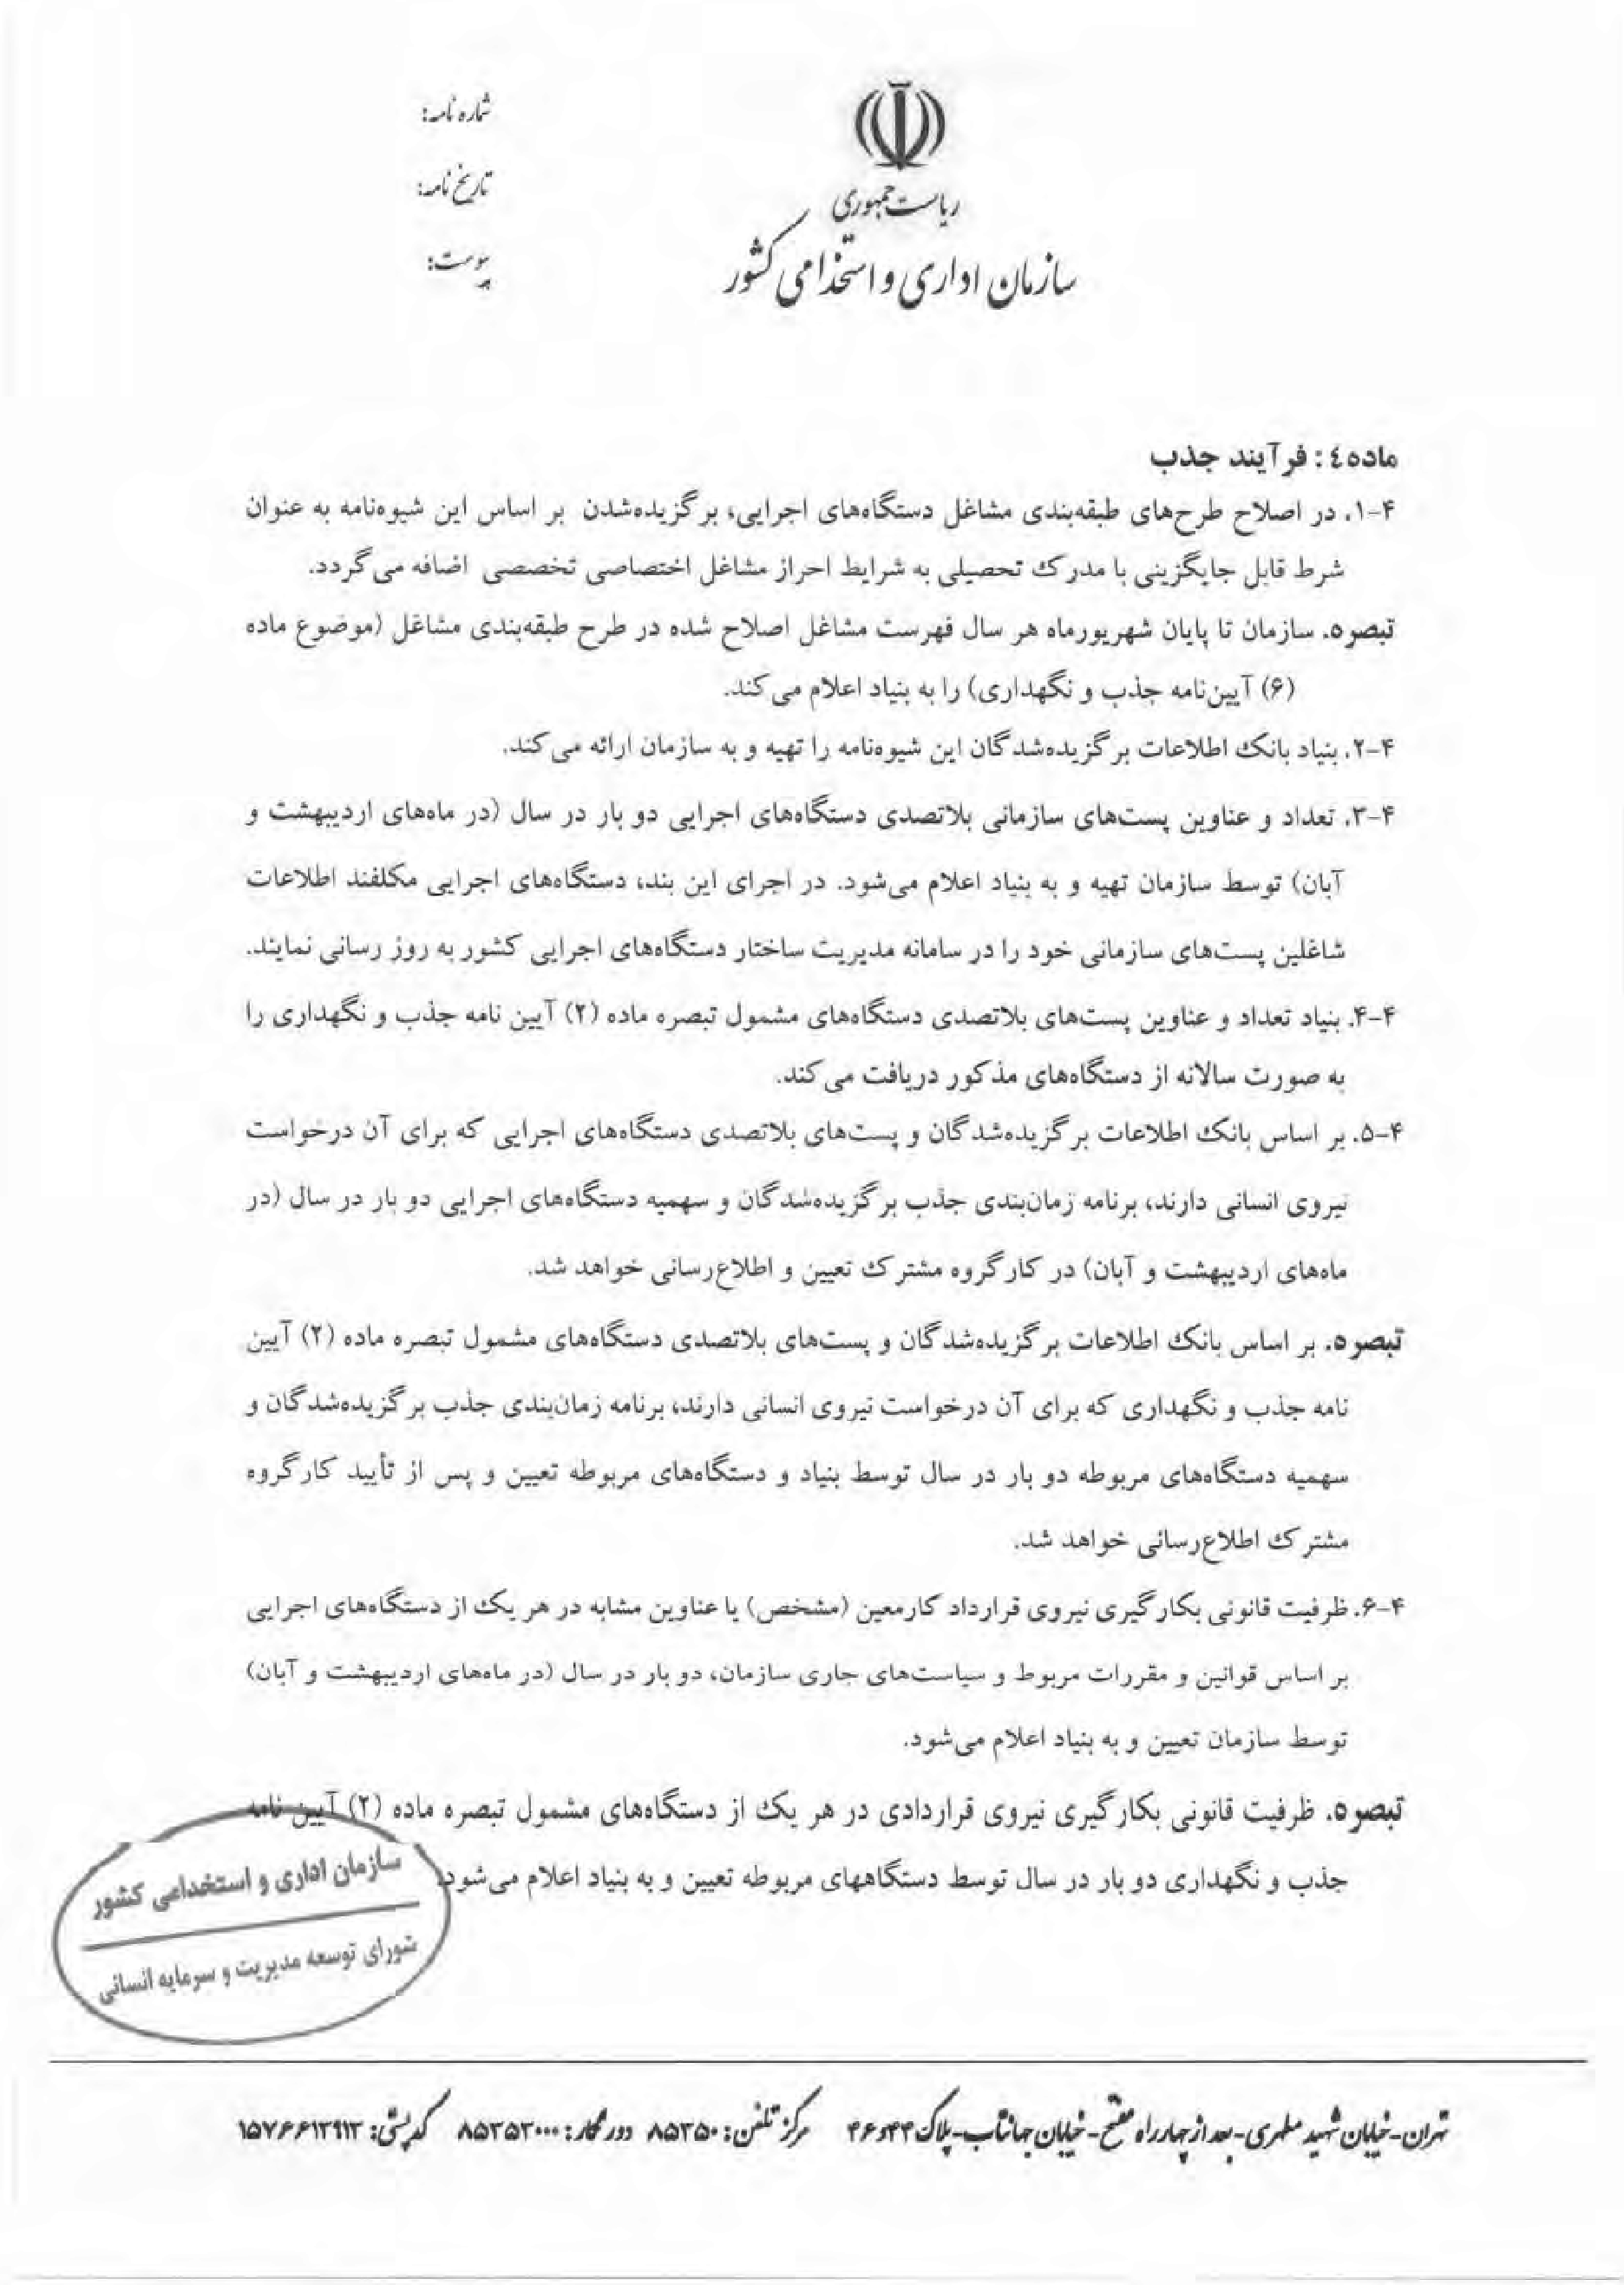 ریاست جمهوری
سازمان اداری و استخدامی کشور
شماره نامه:
تاریخ نامه:
پیوست:
ماده ٤: فرآیند جذب
۴-۱. در اصلاح طرح‌های طبقه‌بندی مشاغل دستگاه‌های اجرایی، برگزیده‌شدن بر اساس این شیوه‌نامه به عنوان
شرط قابل جایگزینی با مدرک تحصیلی به شرایط احراز مشاغل اختصاصی تخصصی اضافه می‌گردد.
تبصره. سازمان تا پایان شهریورماه هر سال فهرست مشاغل اصلاح شده در طرح طبقه‌بندی مشاغل (موضوع ماده
(۶) آیین‌نامه جذب و نگهداری) را به بنیاد اعلام می‌کند.
۴-۲. بنیاد بانک اطلاعات برگزیده‌شدگان این شیوه‌نامه را تهیه و به سازمان ارائه می‌کند.
۴-۳. تعداد و عناوین پست‌های سازمانی بلاتصدی دستگاه‌های اجرایی دو بار در سال (در ماه‌های اردیبهشت و
آبان) توسط سازمان تهیه و به بنیاد اعلام می‌شود. در اجرای این بند، دستگاه‌های اجرایی مکلفند اطلاعات
شاغلین پست‌های سازمانی خود را در سامانه مدیریت ساختار دستگاه‌های اجرایی کشور به روز رسانی نمایند.
۴-۴. بنیاد تعداد و عناوین پست‌های بلاتصدی دستگاه‌های مشمول تبصره ماده (۲) آیین نامه جذب و نگهداری را
به صورت سالانه از دستگاه‌های مذکور دریافت می‌کند.
۴-۵. بر اساس بانک اطلاعات برگزیده‌شدگان و پست‌های بلاتصدی دستگاه‌های اجرایی که برای آن درخواست
نیروی انسانی دارند، برنامه زمان‌بندی جذب برگزیده‌شدگان و سهمیه دستگاه‌های اجرایی دو بار در سال (در
ماه‌های اردیبهشت و آبان) در کارگروه مشترک تعیین و اطلاع‌رسانی خواهد شد.
تبصره. بر اساس بانک اطلاعات برگزیده‌شدگان و پست‌های بلاتصدی دستگاه‌های مشمول تبصره ماده (۲) آیین
نامه جذب و نگهداری که برای آن درخواست نیروی انسانی دارند، برنامه زمان‌بندی جذب برگزیده‌شدگان و
سهمیه دستگاه‌های مربوطه دو بار در سال توسط بنیاد و دستگاه‌های مربوطه تعیین و پس از تأیید کارگروه
مشترک اطلاع‌رسانی خواهد شد.
۴-۶. ظرفیت قانونی بکارگیری نیروی قرارداد کارمعین (مشخص) یا عناوین مشابه در هر یک از دستگاه‌های اجرایی
بر اساس قوانین و مقررات مربوط و سیاست‌های جاری سازمان، دو بار در سال (در ماه‌های اردیبهشت و آبان)
توسط سازمان تعیین و به بنیاد اعلام می‌شود.
تبصره. ظرفیت قانونی بکارگیری نیروی قراردادی در هر یک از دستگاه‌های مشمول تبصره ماده (۲) آیین نامه
جذب و نگهداری دو بار در سال توسط دستگاههای مربوطه تعیین و به بنیاد اعلام می‌شود.
سازمان اداری و استخدامی کشور
شورای توسعه مدیریت و سرمایه انسانی
تهران-خیابان شهید مطهری-بعد از چهارراه مفتح-خیابان جهانتاب-پلاک ۴۴و۴۶ مرکز تلفن: ۸۵۳۵۰ دورنگار: ۸۵۳۵۳۰۰۰ کدپستی: ۱۵۷۶۶۱۳۹۱۳